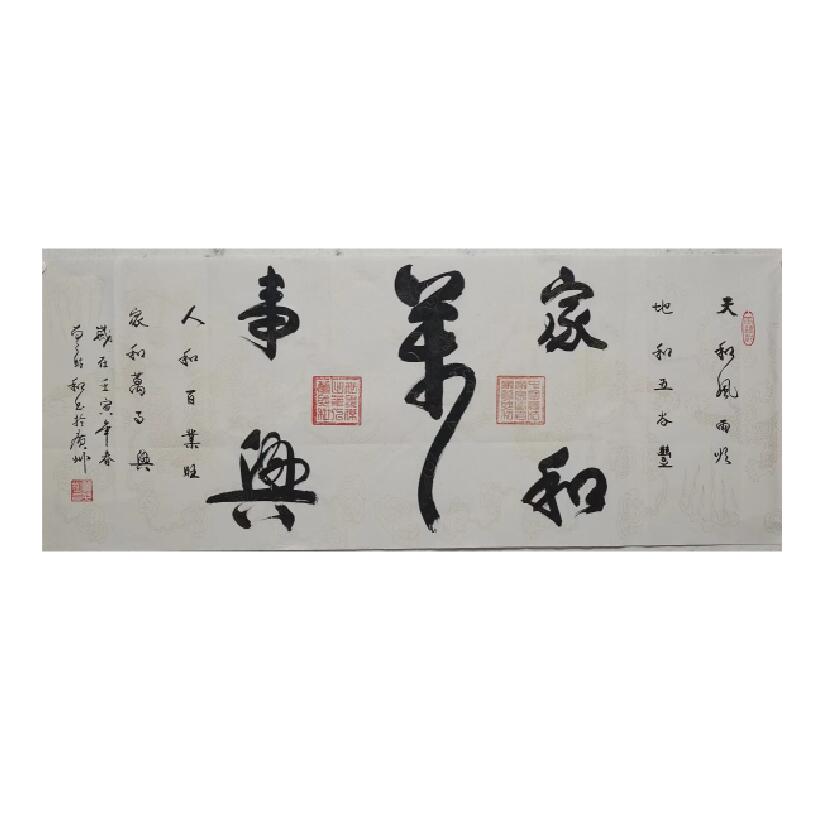 天和風雨順
地和五谷豐
家和
萬
事興
人和百業旺
家和萬事興
歲在壬寅年春
書於廣州